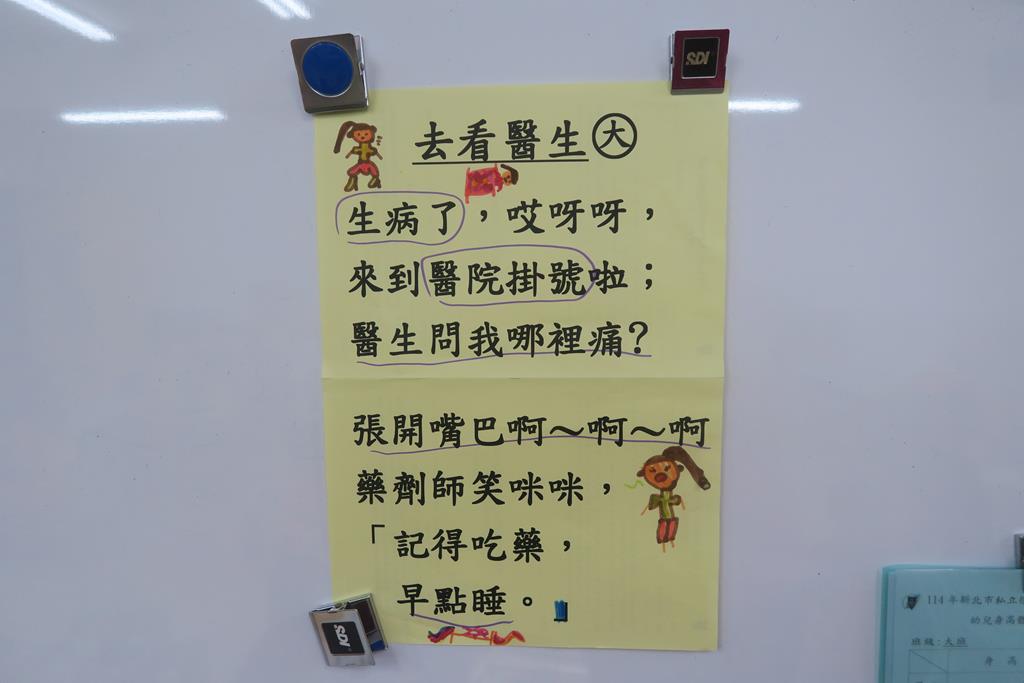 去看醫生大
生病了，哎呀呀，
來到醫院掛號啦；
醫生問我哪裡痛？
張開嘴巴啊～啊～啊
藥劑師笑咪咪，
「記得吃藥，
早點睡。
SDI
SDI
114年新北市私立
幼兒身高體
班級：大班
身高